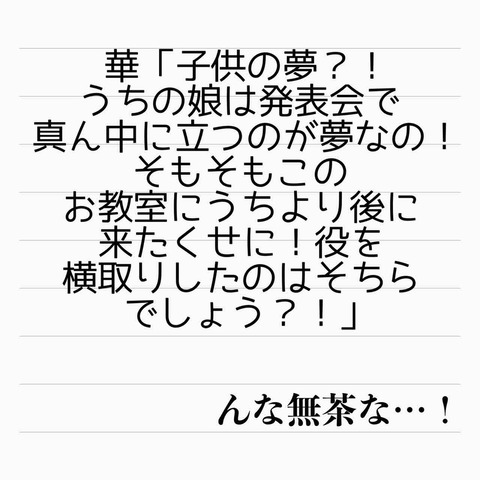 華「子供の夢？！
うちの娘は発表会で
真ん中に立つのが夢なの！
そもそもこの
お教室にうちより後に
来たくせに！役を
横取りしたのはそちら
でしょう？！」
んな無茶な…！